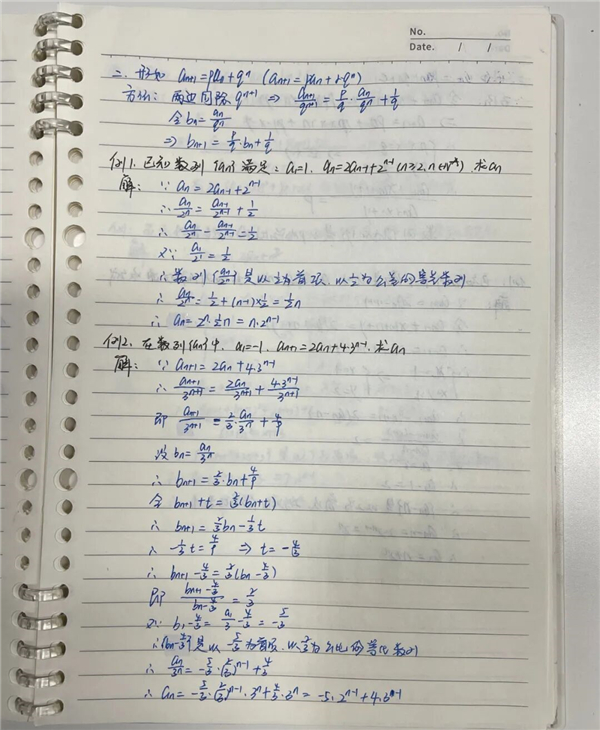 No.
Date. / /
二、形如 aₙ₊₁=paₙ+qⁿ (aₙ₊₁=paₙ+rqⁿ)
方法: 两边同除 qⁿ⁺¹ ⇒ aₙ₊₁/qⁿ⁺¹ = p/q · aₙ/qⁿ + 1/q
令 bₙ=aₙ/qⁿ
⇒ bₙ₊₁ = p/q · bₙ + 1/q
例1. 已知数列{aₙ}满足: a₁=1, aₙ=2aₙ₋₁+2ⁿ⁻¹ (n≥2, n∈N*), 求aₙ
解: ∵ aₙ=2aₙ₋₁+2ⁿ⁻¹
∴ aₙ/2ⁿ = aₙ₋₁/2ⁿ⁻¹ + 1/2
∴ aₙ/2ⁿ - aₙ₋₁/2ⁿ⁻¹ = 1/2
又∵ a₁/2¹ = 1/2
∴ 数列{aₙ/2ⁿ}是以1/2为首项, 以1/2为公差的等差数列
∴ aₙ/2ⁿ = 1/2 + (n-1)×1/2 = 1/2n
∴ aₙ = 2ⁿ·1/2n = n·2ⁿ⁻¹
例2. 在数列{aₙ}中, a₁=-1, aₙ₊₁=2aₙ+4·3ⁿ⁻¹, 求aₙ
解: ∵ aₙ₊₁=2aₙ+4·3ⁿ⁻¹
∴ aₙ₊₁/3ⁿ⁺¹ = 2aₙ/3ⁿ⁺¹ + 4·3ⁿ⁻¹/3ⁿ⁺¹
即 aₙ₊₁/3ⁿ⁺¹ = 2/3 · aₙ/3ⁿ + 4/9
设 bₙ=aₙ/3ⁿ
∴ bₙ₊₁ = 2/3 · bₙ + 4/9
令 bₙ₊₁+t = 2/3(bₙ+t)
∴ bₙ₊₁ = 2/3bₙ - 1/3t
∴ -1/3t = 4/9 ⇒ t = -4/3
∴ bₙ₊₁ - 4/3 = 2/3(bₙ - 4/3)
即 (bₙ₊₁ - 4/3)/(bₙ - 4/3) = 2/3
又∵ b₁ - 4/3 = a₁/3 - 4/3 = -5/3
∴ {bₙ - 4/3}是以-5/3为首项, 以2/3为公比的等比数列
∴ aₙ/3ⁿ = -5/3·(2/3)ⁿ⁻¹ + 4/3
∴ aₙ = -5/3·(2/3)ⁿ⁻¹·3ⁿ + 4/3·3ⁿ = -5·2ⁿ⁻¹ + 4·3ⁿ⁻¹